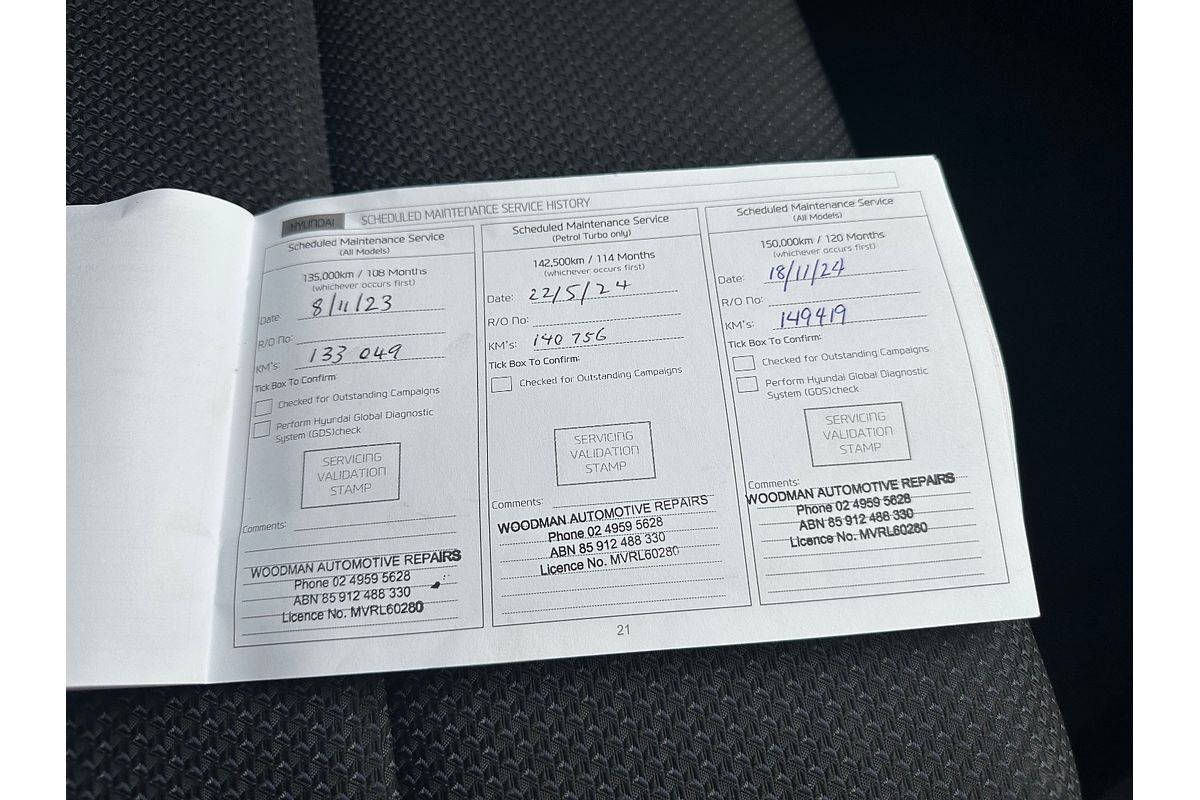 HYUNDAI SCHEDULED MAINTENANCE SERVICE HISTORY
Scheduled Maintenance Service
(All Models)
135,000km / 108 Months
(whichever occurs first)
Date: 8/11/23
R/O No:
KM's: 133 049
Tick Box To Confirm:
Checked for Outstanding Campaigns
Perform Hyundai Global Diagnostic
System (GDS)check
SERVICING
VALIDATION
STAMP
Comments:
WOODMAN AUTOMOTIVE REPAIRS
Phone 02 4959 5628
ABN 85 912 488 330
Licence No. MVRL60280
Scheduled Maintenance Service
(Petrol Turbo only)
142,500km / 114 Months
(whichever occurs first)
Date: 22/5/24
R/O No:
KM's: 140 756
Tick Box To Confirm:
Checked for Outstanding Campaigns
SERVICING
VALIDATION
STAMP
Comments:
WOODMAN AUTOMOTIVE REPAIRS
Phone 02 4959 5628
ABN 85 912 488 330
Licence No. MVRL60280
Scheduled Maintenance Service
(All Models)
150,000km / 120 Months
(whichever occurs first)
Date: 18/11/24
R/O No:
KM's: 149419
Tick Box To Confirm:
Checked for Outstanding Campaigns
Perform Hyundai Global Diagnostic
System (GDS)check
SERVICING
VALIDATION
STAMP
Comments:
WOODMAN AUTOMOTIVE REPAIRS
Phone 02 4959 5628
ABN 85 912 488 330
Licence No. MVRL60280
21